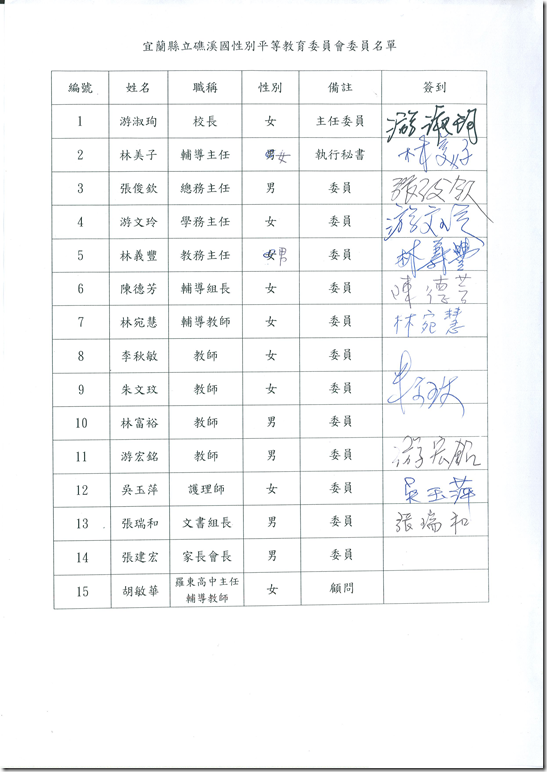 宜蘭縣立礁溪國性別平等教育委員會委員名單
編號 姓名 職稱 性別 備註 簽到
1 游淑珣 校長 女 主任委員 游淑珣
2 林美子 輔導主任 男女 執行秘書 林美子
3 張俊欽 總務主任 男 委員 張俊欽
4 游文玲 學務主任 女 委員 游文玲
5 林義豐 教務主任 女男 委員 林義豐
6 陳德芳 輔導組長 女 委員 陳德芳
7 林宛慧 輔導教師 女 委員 林宛慧
8 李秋敏 教師 女 委員
9 朱文玟 教師 女 委員 朱文玟
10 林富裕 教師 男 委員
11 游宏銘 教師 男 委員 游宏銘
12 吳玉萍 護理師 女 委員 吳玉萍
13 張瑞和 文書組長 男 委員 張瑞和
14 張建宏 家長會長 男 委員
15 胡敏華 羅東高中主任 女 顧問
輔導教師